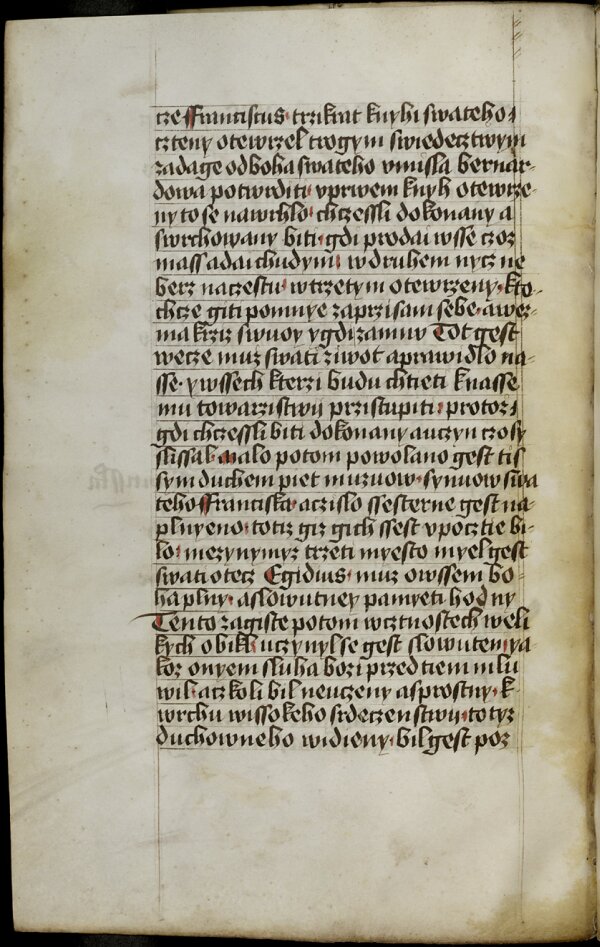 cze Ffranciscus trzikrat knyhi swateho
czteny otewrzel trogym swiedecztwym
zadage od boha swateho vmisla bernar-
dowa potwrditi vprwem knyh otewrze-
ny to se nawrhlo chczessli dokonany a
swrchowany biti gdi prodai wsse czoz
mass a dai chudym w druhem nycz ne
berz naczestu w trzetym otewrzeny kto
chcze giti po mnye zaprzi sam sebe a wez-
ma krziz swuoy y gdi za mnu Tot gest
wecze muz swati ziwot a prawidlo na-
sse y wssech kterzi budu chtieti k nasse
mu towarzistwij przistupiti protoz
gdi chczessli biti dokonany a uczyn czosy
slissal malo potom powolano gest tis
sym duchem piet muzuow synuow swa
teho Ffranciska a czislo ssesterne gest na-
plnyeno totiz giz gich ssest v pocztie bi-
lo mezynymyz trzeti myesto myel gest
swati otecz Egidius muz owssem bo-
ha plny a slowutney pamyeti hodny
Tento zagiste potom w cztnostech weli
kych obikli uczynyl se gest slowuteny ya
koz onyem sluha bozi przed tiem mlu
wil aczkoli bil neuczeny a sprostny k-
wrchu wissokeho srdeczenstwij totyz
duchowneho widieny bil gest poz